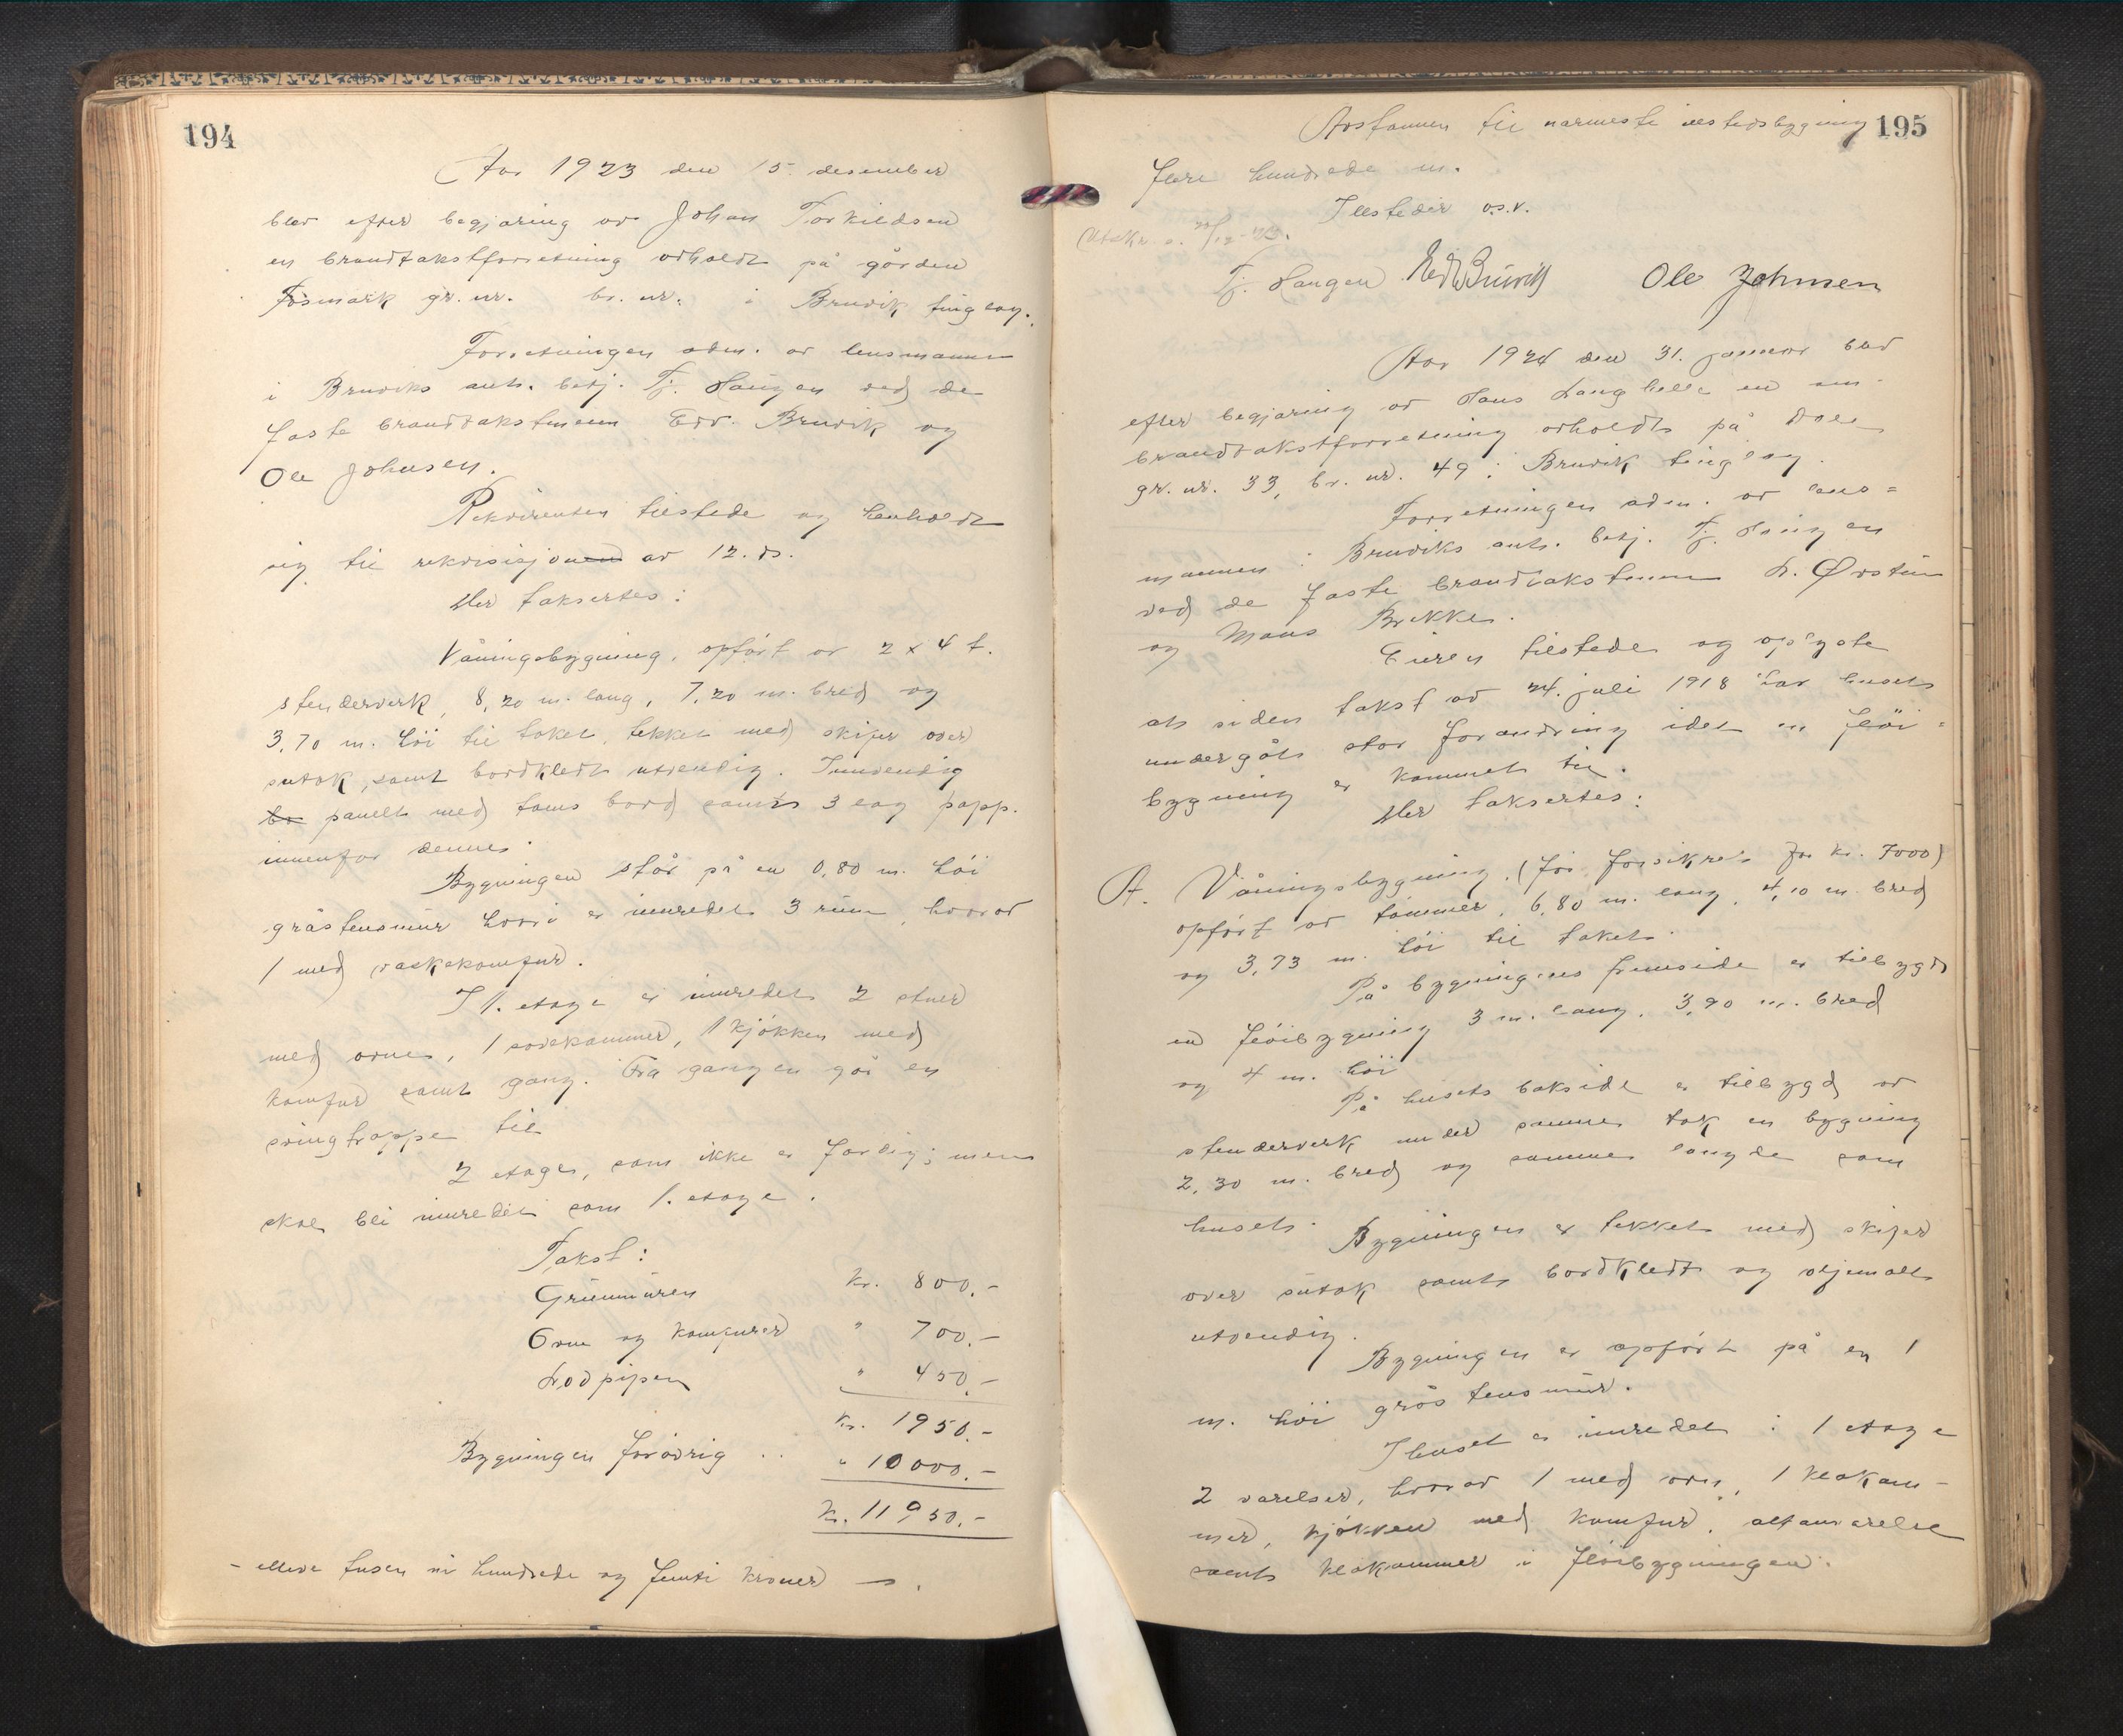 194
Aar 1923 den 15. desember
blev efter begjæring av Johan Torkildsen
en brandtakstforretning avholdt på gården
Fosmark gr. nr. br. nr. i Bruvik tinglag.
Forretningen adm. av lensmannen
i Bruviks aut. betj. Tj. Haugen ved de
faste brandtakstmenn Edv. Bruvik og
Ole Johnsen.
Rekvirenten tilstede og henholdt
sig til rekvisisjonen av 12. ds.
Her taksertes:
Våningsbygning, opført av 2 x 4 t.
stenderverk, 8,20 m. lang, 7,20 m. bred og
3,70 m. höi til taket, tekket med skifer over
sutak, samt bordkledt utvendig. Innvendig
bo panelt med toms bord samt 3 lag papp.
innenfor denne.
Bygningen står på en 0,80 m. höi
gråstensmur hvori er innredet 3 rum, hvorav
1 med vaskekomfur.
I 1. etage er innredet 2 stuer
med ovne, 1 sovekammer, 1 kjøkken med
komfur samt gang. Fra gangen går en
svingtrappe til
2 etage, som ikke er færdig; men
skal bli innredet som 1. etage.
Takst:
Grunnmuren kr. 800.-
Ovne og komfurer " 700.-
Lodpipen " 450.-
Kr. 1950.-
Bygningen forøvrig .. " 10000.-
Kr. 11950.-
- elleve tusen ni hundrede og femti kroner -.
195
Avstannen til nærmeste ildstedsbygning
flere hundrede m.
Illsteder o.s.v.
Utskr. s. 20/12-23.
Tj. Haugen Edv Bruvik Ole Johnsen
Aar 1924 den 31. januar blev
efter begjæring av Hans Langhelle en om-
brandtakstforretning avholdt på Dale
gr. nr. 33, br. nr. 49 i Bruvik tinglag.
Forretningen adm. av lens=
mannen i Bruviks aut. betj. Tj. Haugen
ved de faste brandtakstmenn L. Ørstun
og Mons Brekke.
Eieren tilstede og oplyste
at siden takst av 24. juli 1918 har huset
undergåt stor forandring idet en fløi=
bygning er kommet til.
Her taksertes:
A. Våningsbygning, (før forsikret for kr. 7000)
opført av tømmer, 6,80 m. lang, 4,10 m. bred
og 3,73 m. höi til taket.
På bygningens fremside er tilbygd
en fløibygning 3 m. lang, 3,90 m. bred
og 4 m. höi
På husets bakside er tilbygd av
stenderverk under samme tak en bygning
2,30 m. bred og samme længde som
huset.
Bygningen er tekket med skifer
over sutak samt bordkledt og oljemalt
utvendig.
Bygningen er opført på en 1
m. höi gråstensmur.
I huset er innredet i 1 etage
2 værelser, hvorav 1 med ovn, 1 klekam-
mer, kjøkken med komfur, altanværelse
samt klekammer i fløibygningen.